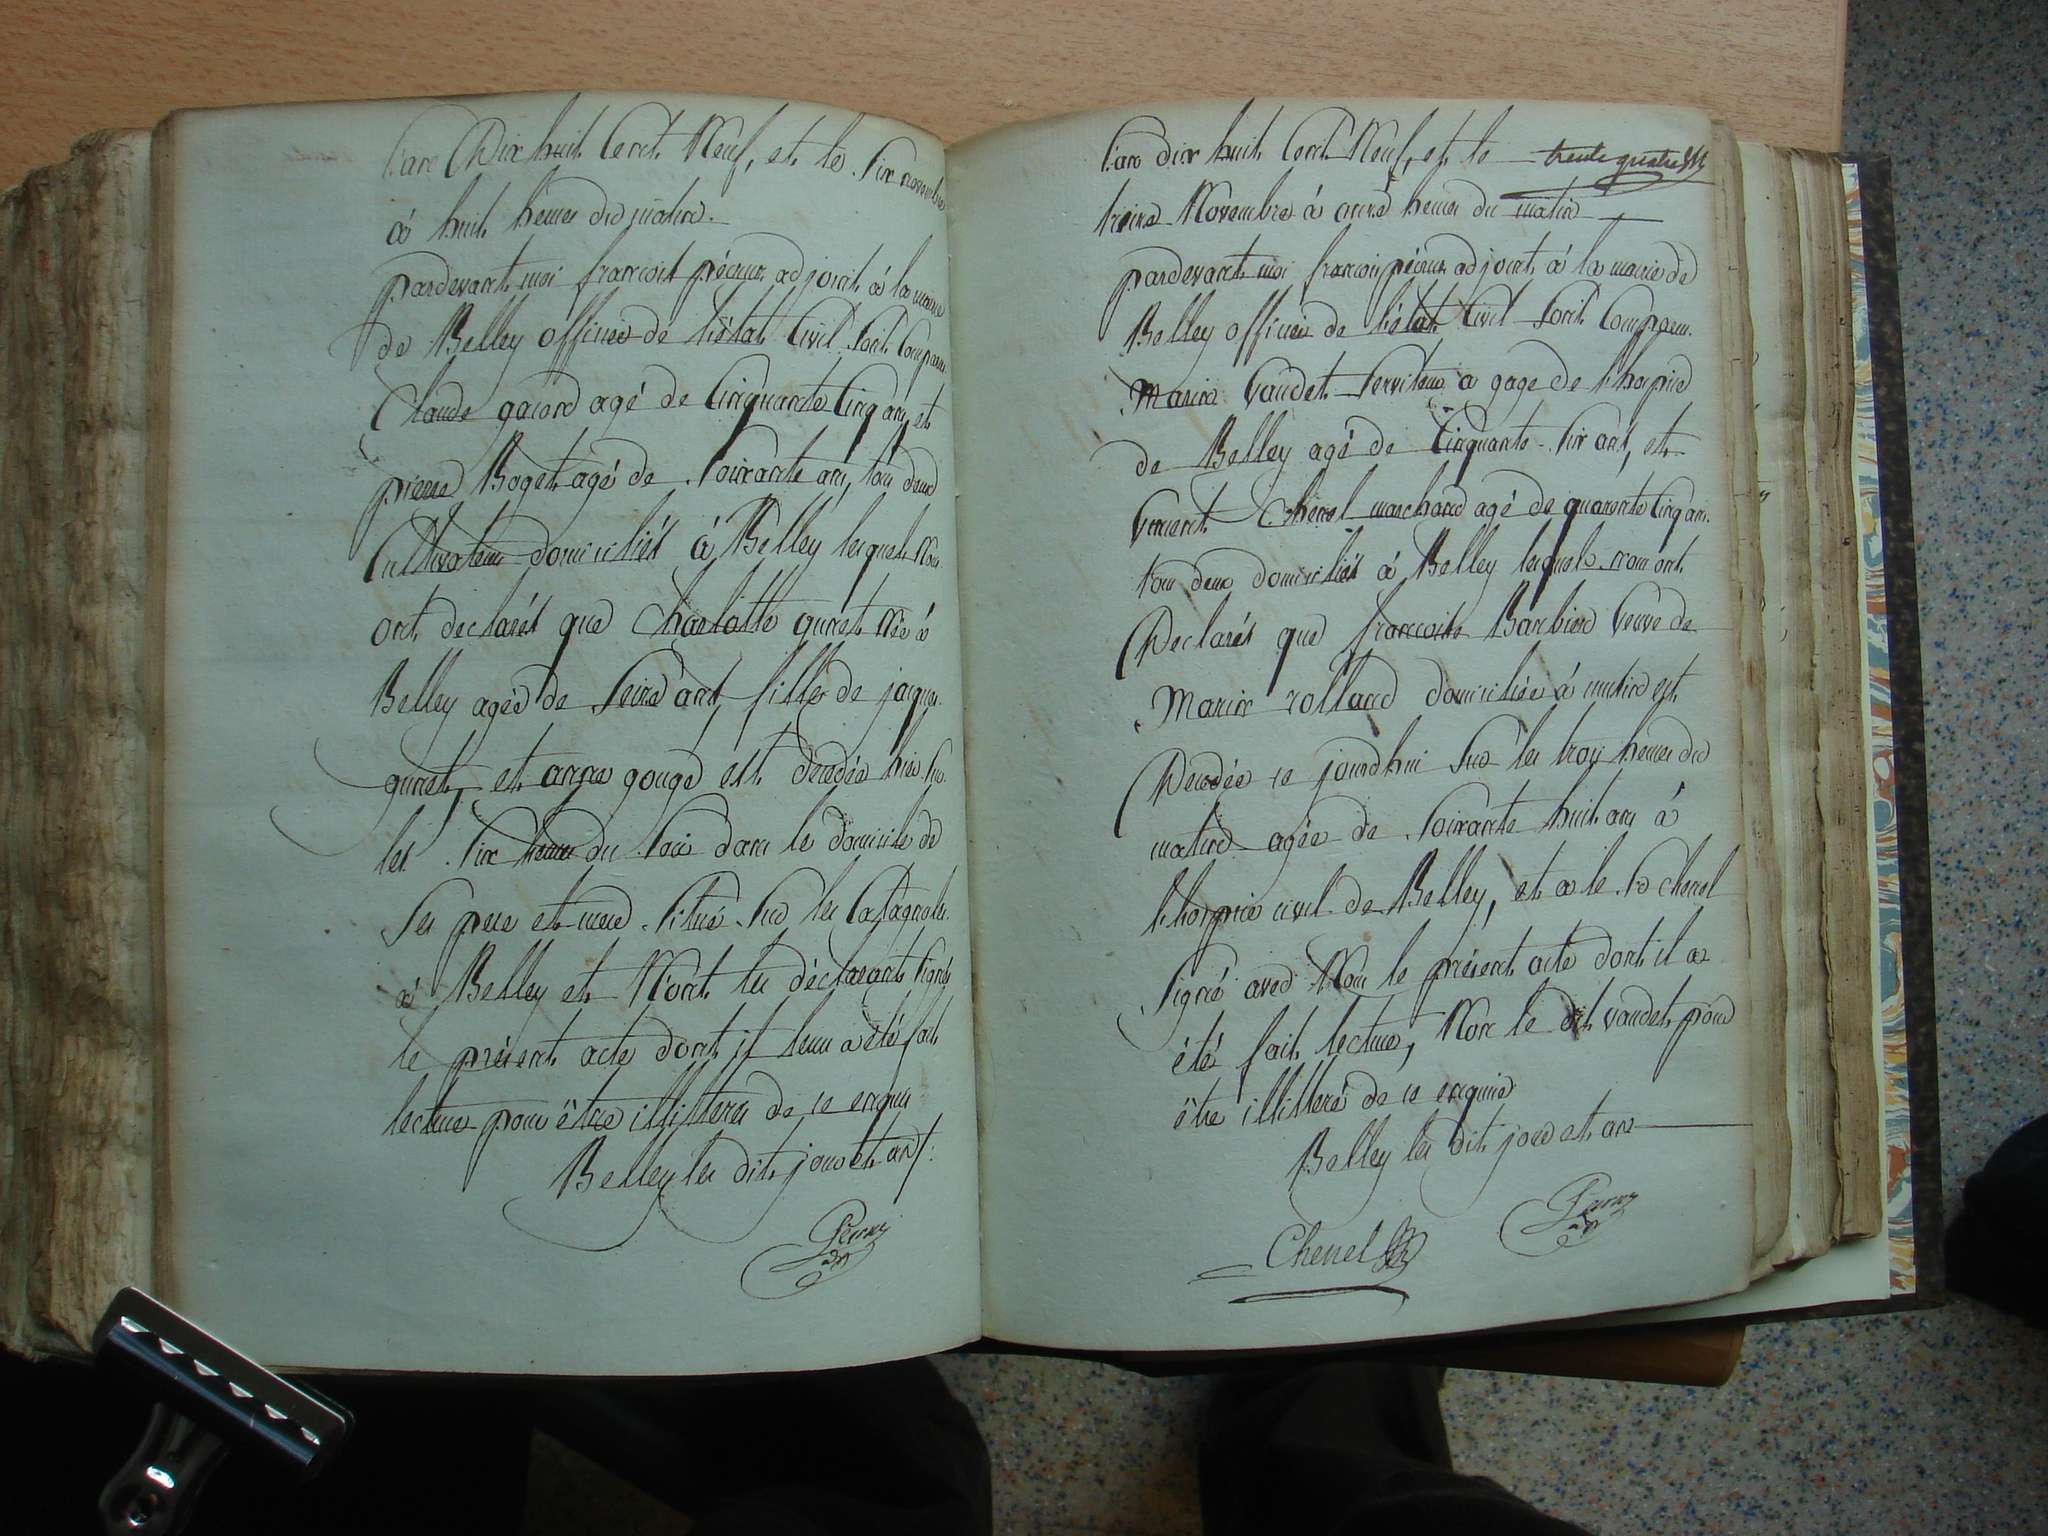 L'an Dix huit Cent Neuf, et le Six novembre
à huit heures du matin.
pardevant moi francois adjoint à la mairie
de Belley officier de l'état Civil Sont Comparu
Claude agé de Cinquante Cinq ans, et
pierre Roget agé de Soixante ans, tous deux
Cultivateurs domiciliés à Belley lesquels Nous
ont declarés que Charlotte né à
Belley agée de Seize ans fille de jacques
et anne gouge est décédée hier Sur
les Six heures du Soir dans le domicile de
Ses pere et mere Situé Sur les
à Belley et N'ont les déclarants Signés
le présent acte dont il leur a été fait
lecture pour être illitterés de ce enquis
Belley les dit jour et an
L'an dix huit Cent Neuf, et le trente quatre
treize Novembre à onze heures du matin
pardevant moi francois adjoint à la mairie de
Belley officier de l'état Civil Sont Comparu.
Marin Vaudet Serviteur a gage de l'hospice
de Belley agé de Cinquante Six ans, et
Vincent Chenel marchand agé de quarante Cinq ans.
tous deux domiciliés à Belley lesquels nous ont
Declarés que francoise Barbier Veuve de
Marin rolland domiciliée à est
Decedée ce jourdhui Sur les trois heures du
matin agée de Soixante huit ans à
l'hospice civil de Belley, et a le Sr chenel
Signé avec Nous le présent acte dont il a
été fait lecture, Non le dit vaudet pour
être illitteré de ce enquis
Belley les dit jour et an
Chenel